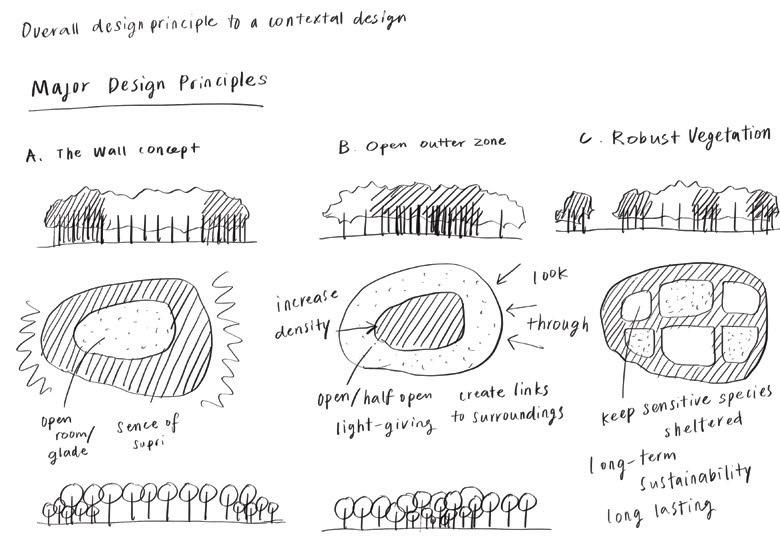 Overall design principle to a contextal design
Major Design Principles
A. The Wall concept
B. Open outter zone
C. Robust Vegetation
Open
room/
glade
Sence of
supri
increase
density
look
through
open/half open
light-giving
create links
to surroundings
keep sensitive species
sheltered
long-term
sustainability
long lasting